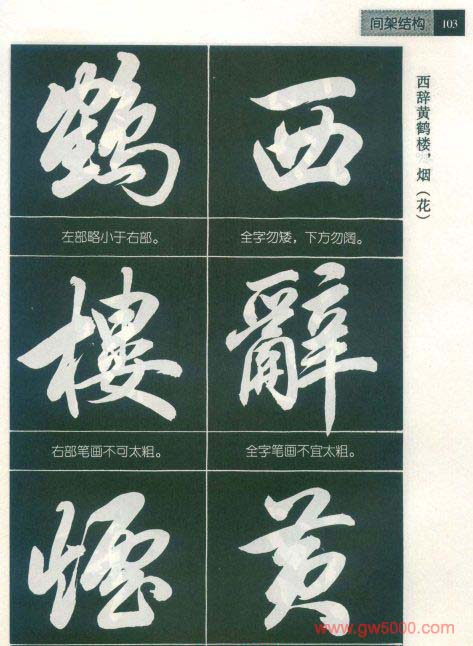 间架结构 103
西辞黄鹤楼，烟（花）
西
全字勿矮，下方勿阔。
辭
全字笔画不宜太粗。
黄
鶴
左部略小于右部。
樓
右部笔画不可太粗。
煙
www.gw5000.com